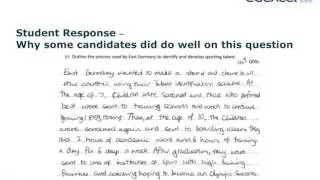 Student Response –
Why some candidates did do well on this question
(c) Outline the process used by East Germany to identify and develop sporting talent.
East Germany wanted to make a stand out above all
other countries using their talent identification scheme. At
the age of 7, children were screened and those who performed
best were sent to training schools mid week to continue
progressing. Then, at the age of 10, the children
were screened again and sent to boarding where they
did 2 hours of academic work and 6 hours of training
a day for 6 days a week. After graduation, they were
sent to one of institutes of sport with high training
facilities and coaching hoping to become an Olympic Success.